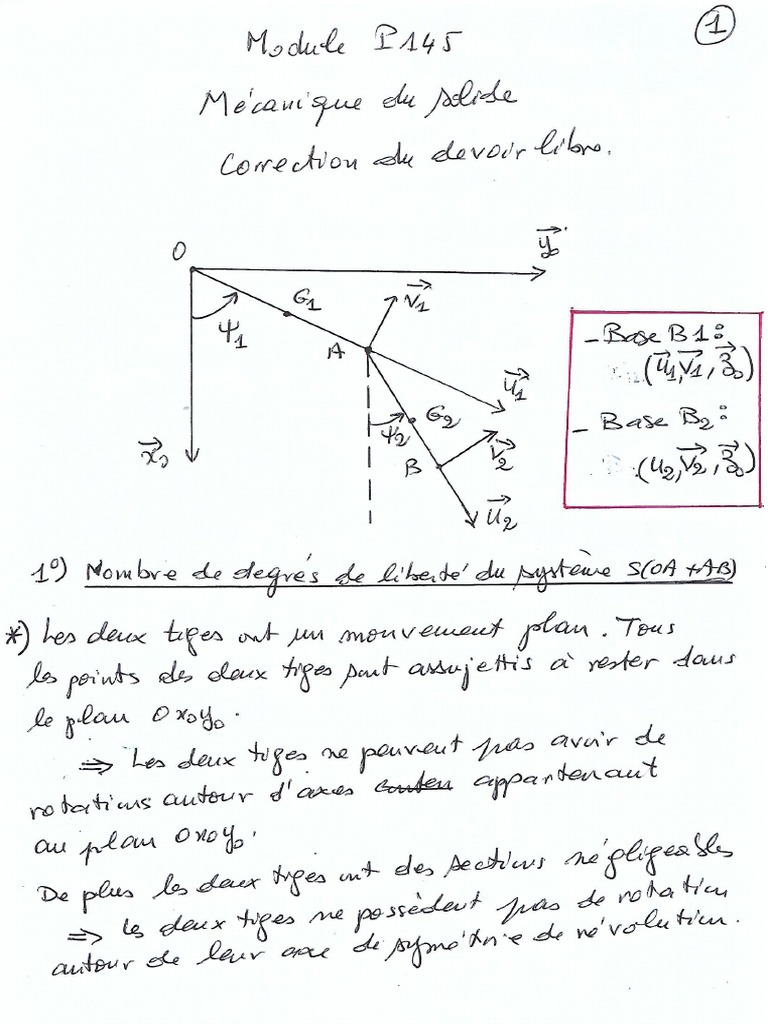 1
Module P145
Mécanique du solide
Correction du devoir libre.
O
y₀
G1
V1
Ψ1
A
U1
- Base B1:
(U1, V1, z₀)
- Base B2:
(U2, V2, z₀)
G2
Ψ2
V2
B
x₀
U2
1°) Nombre de degrés de liberté du système S(OA+AB)
*) Les deux tiges ont un mouvement plan. Tous
les points des deux tiges sont assujettis à rester dans
le plan Ox₀y₀.
⇒ Les deux tiges ne peuvent pas avoir de
rotations autour d'axes appartenant
au plan Ox₀y₀.
De plus les deux tiges ont des sections négligeables
⇒ les deux tiges ne possèdent pas de rotation
autour de leur axe de symétrie de révolution.